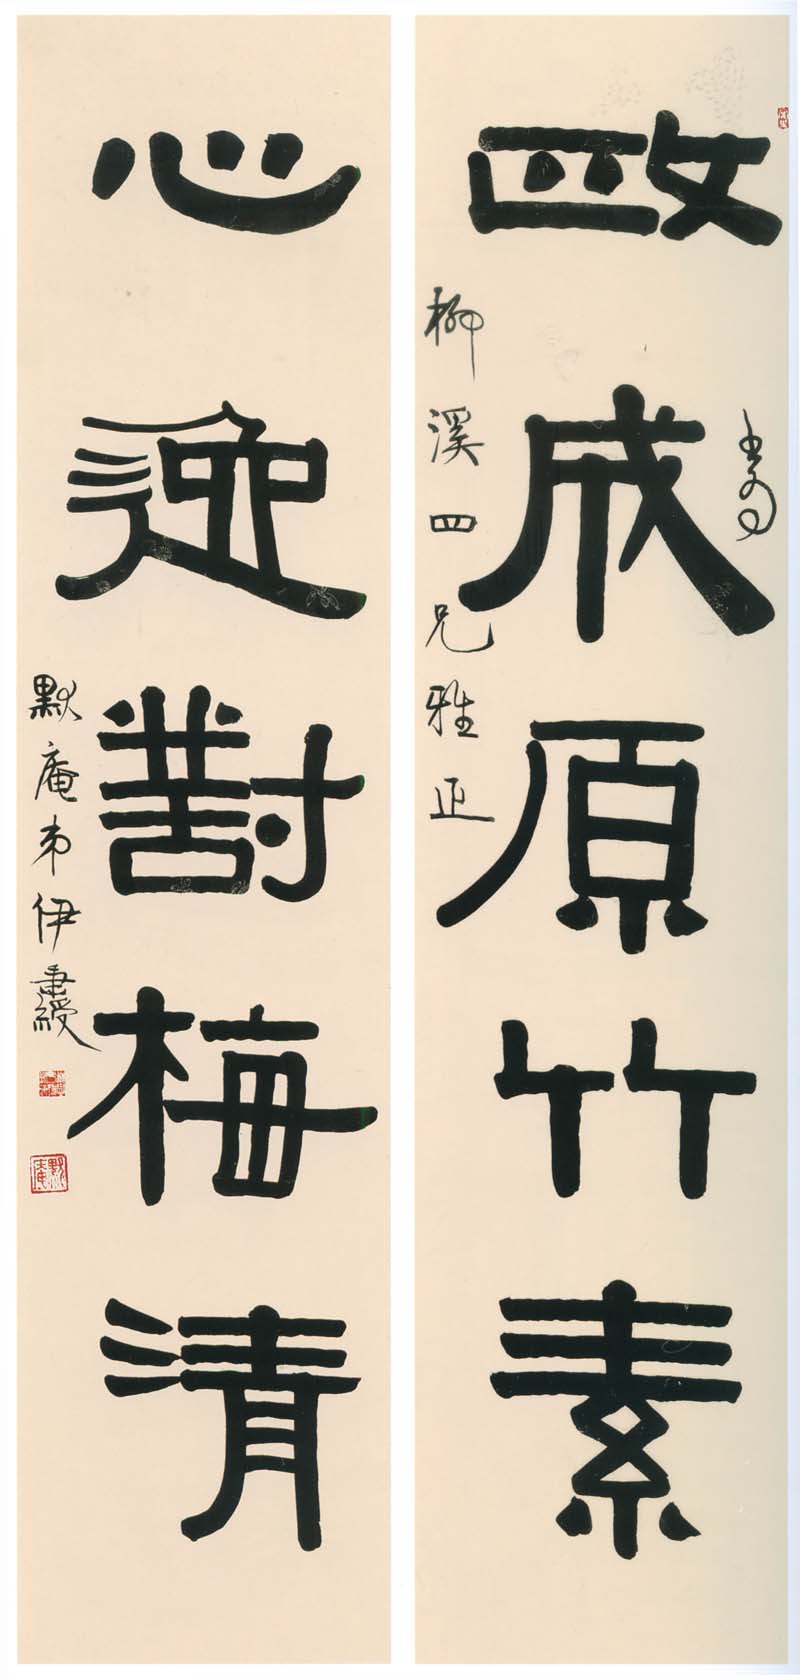 政成原竹素
書為
柳溪四兄雅正
心逸對梅清
默庵弟伊秉綬
默庵